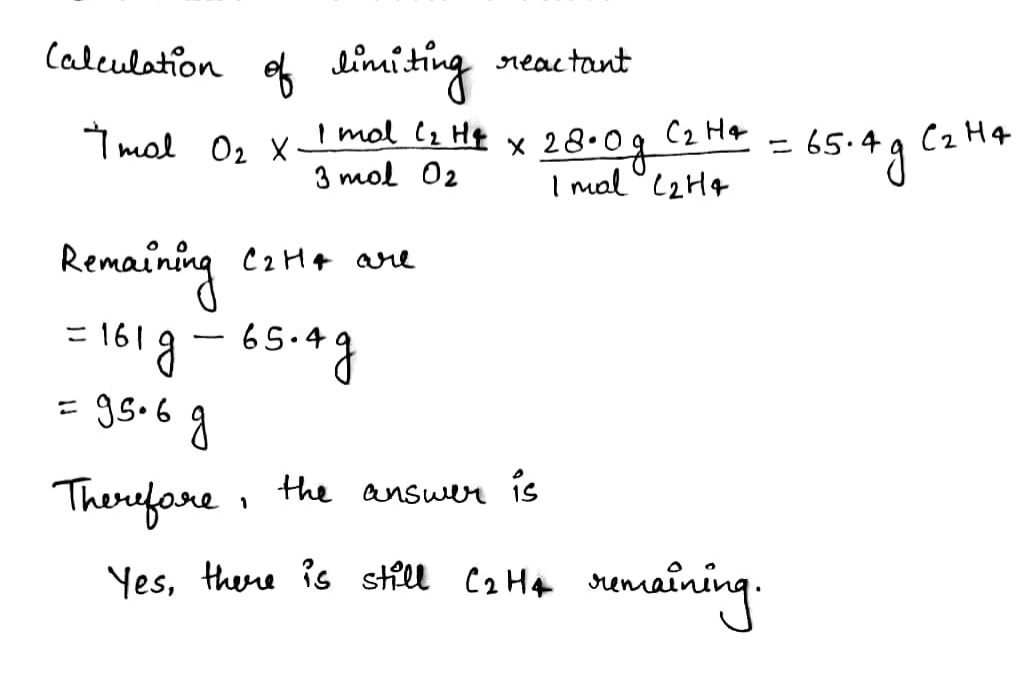 Calculation of limiting reactant
7 mol O2 x 1 mol C2H4 / 3 mol O2 x 28.0g C2H4 / 1 mol C2H4 = 65.4g C2H4
Remaining C2H4 are
= 161g - 65.4g
= 95.6 g
Therefore, the answer is
Yes, there is still C2H4 remaining.